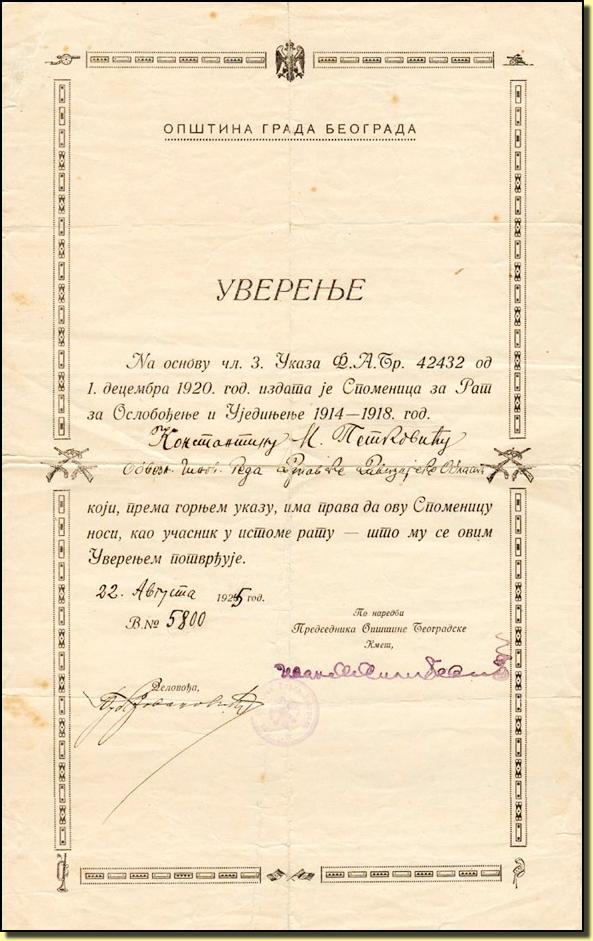 ОПШТИНА ГРАДА БЕОГРАДА
УВЕРЕЊЕ
На основу чл. 3. Указа Ф.А.Бр. 42432 од
1. децембра 1920. год. издата је Споменица за Рат
за Ослобођење и Уједињење 1914—1918. год.
Константину М. Петковићу
који, према горњем указу, има права да ову Споменицу
носи, као учасник у истоме рату — што му се овим
Уверењем потврђује.
22. Августа 1925 год.
В.№ 5800
По наредби
Председника Општине Београдске
Кмет,
Деловођа,